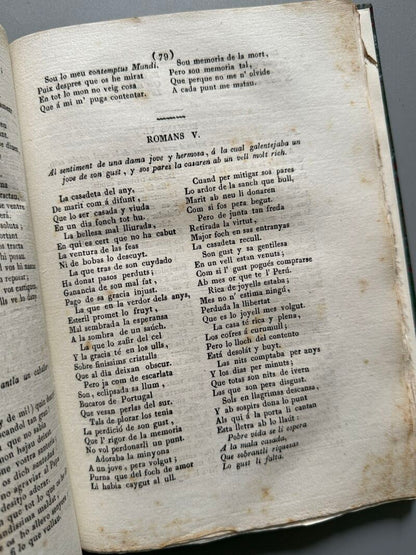 (79)
Sou lo meu contemptus Mundi.
Puix despres que os he mirat
En tot lo mon no veig cosa
Que á mi m' puga contentar.
Sou memoria de la mort,
Pero sou memoria tal,
Que perque no me n' olvide
A cada punt me matau.
ROMANS V.
Al sentiment de una dama jove y hermosa, á la cual galentejaba un
jove de son gust, y sos pares la casaren ab un vell molt rich.
La casadeta del any,
De marit com á difunt,
Que lo ser casada y viuda
En un dia fonch tot hu.
La bellesa mal lliurada,
En qui es cert que no ha cabut
La ventura de las feas
Ni de bobas lo descuyt.
La que tras de son cuydado
Ha donat passos perduts;
Ganancia de son mal fat,
Pago de sa gracia injust.
La que en la verdor dels anys,
Esteril promet lo fruyt,
Mal sembrada la esperansa
A la sombra de un saúch.
La que lo zafir del cel
Y la gracia té en los ulls,
Sobre finissims cristalls
Que al dia deixan obscur.
Pero ja com de escarlata
Son, eclipsada sa llum,
Bucaros de Portugal
Que vesan perlas del sur.
Tals de plorar los tenia
La perdició de son gust,
Que l' rigor de la memoria
No vol perdonarli un punt.
Adoraba la minyona
A un jove, pera volgut;
Purna que del foch de amor
Li habia caygut al ull.
Cuand per mitigar sos pares
Lo ardor de la sanch que bull,
Marit ab neu li donaren
Com si fos pera begut.
Pero de junta tan freda
Retirada la virtut,
Major foch en sas entranyas
La casadeta recull.
Son gust y sa gentilesa
En un vell estan venuts;
Com si l' gust pogués comprarse
Ab mes or que te l' Perú.
Rica de joyells estaba;
Mes no n' estima ningú,
Perduda la llibertat
Que es lo joyell mes volgut.
La casa té rica y plena,
Los cofres á curumull;
Pero lo lloch del contento
Está desolat y buyt.
Las nits comptaba per anys
Y los dias per minuts;
Que totas son nits de ivern
Las que son pera disgust.
Sols en llagrimas descansa,
Y ab sospirs dona lo punt
Als qui á la porta li cantan
Esta lletra ab lo llaüt:
Pobre vida se li espera
A la mala casada,
Que sobrantli riquesas
Lo gust li falta.